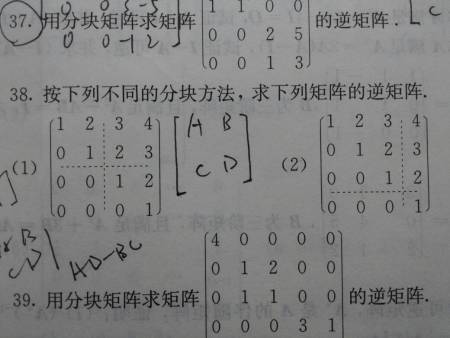 0 0 3 -5
0 0 -1 2
37. 用分块矩阵求矩阵 1 1 0 0 的逆矩阵. [C
0 0 2 5
0 0 1 3
38. 按下列不同的分块方法，求下列矩阵的逆矩阵.
(1) 1 2 3 4
0 1 2 3
0 0 1 2
0 0 0 1
A B
C D
(2) 1 2 3 4
0 1 2 3
0 0 1 2
0 0 0 1
B
CD
AD-BC
39. 用分块矩阵求矩阵 4 0 0 0 0 的逆矩阵.
0 1 2 0 0
0 1 1 0 0
0 0 0 3 1